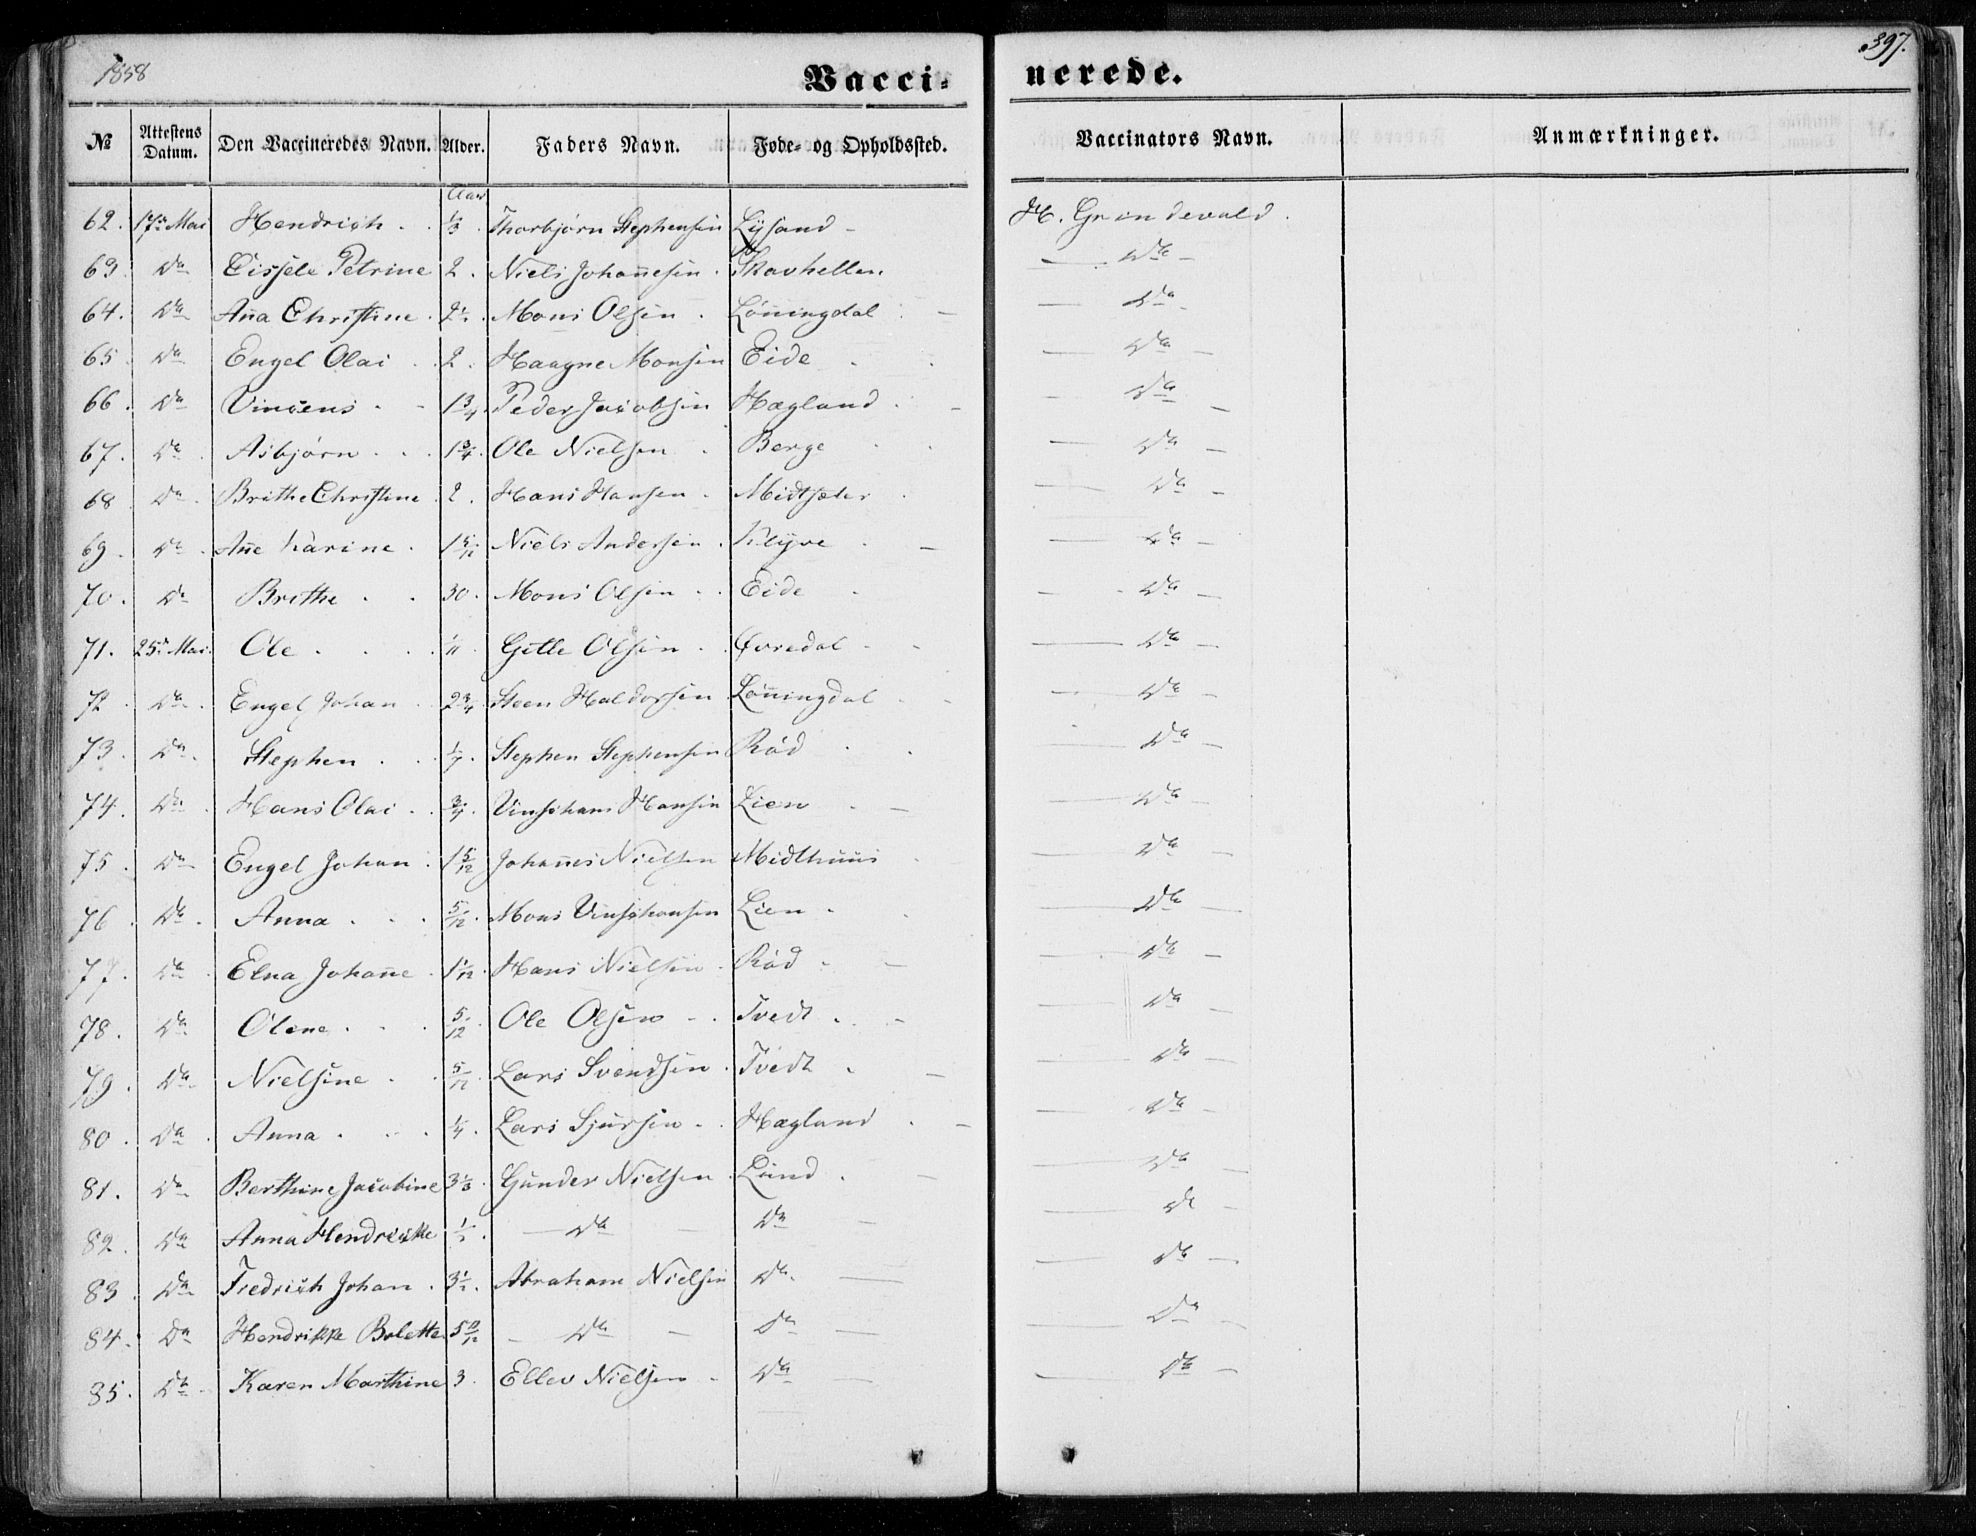 1858
397.
Vacci- nerede.
№ Attestens Datum. Den Vaccineredes Navn. Alder. Faders Navn. Føde- og Opholdssted. Vaccinators Navn. Anmærkninger.
Aar
62. 17de Mai Hendrich 1/3 Thorbjørn Stephensen Lysand H. Grindevald.
63. Do Cissele Petrine 2. Niels Johan̄esen Skavhellen Do
64. Do An̄a Christine 2½. Mons Olsen Løn̄ingdal Do
65 Do Engel Olai 2. Haagne Monsen Eide Do
66. Do Vincens 1¾ Peder Jacobsen Hægland Do
67. Do Asbjørn 1¾ Ole Nielsen Berge Do
68 Do Brithe Christine 2. Hans Hansen Midtsæter Do
69. Do An̄e Karine 1 5/12 Niels Andersen Klyve Do
70. Do Brithe 30. Mons Olsen Eide Do
71. 25de Mai Ole 1/11 Gitle Olsen Øvredal Do
72 Do Engel Johan 2¾ Steen Haldorsen Løn̄ingdal Do
73. Do Stephen 1/7. Stephen Stephensen Rød Do
74. Do Hans Olai ¾. Vinschans Hansen Lien Do
75. Do Engel Johan 1 5/12 Johan̄es Nielsen Midthuus Do
76. Do Anna 5/12. Mons Vinschansen Lien Do
77. Do Elna Johan̄e 1 1/12. Hans Nielsen Rød Do
78. Do Olene 5/12. Ole Olsen Tvedt Do
79. Do Nielsine 5/12. Lars Svendsen Tvedt Do
80. Do Anna ¼. Lars Sjursen Hægland Do
81. Do Berthine Jacobine 3⅓. Gunder Nielsen Lund Do
82. Do Anna Hendrikke ½. Do Do Do
83 Do Fredrich Johan 3½. Abraham Nielsen Do Do
84. Do Hendrikke Bolette 5 Do Do Do
85. Do Karen Marthine 3. Ellev Nielsen Do Do